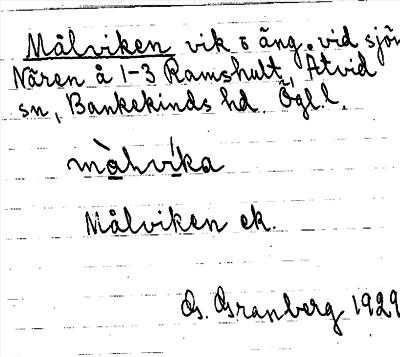 Målviken vik o äng. vid sjön
Nären å 1-3 Ramshult, Åtvid
sn, Bankekinds hd. Ögl. l.
màlvi΄ka
Målviken ek.
G. Granberg 1929